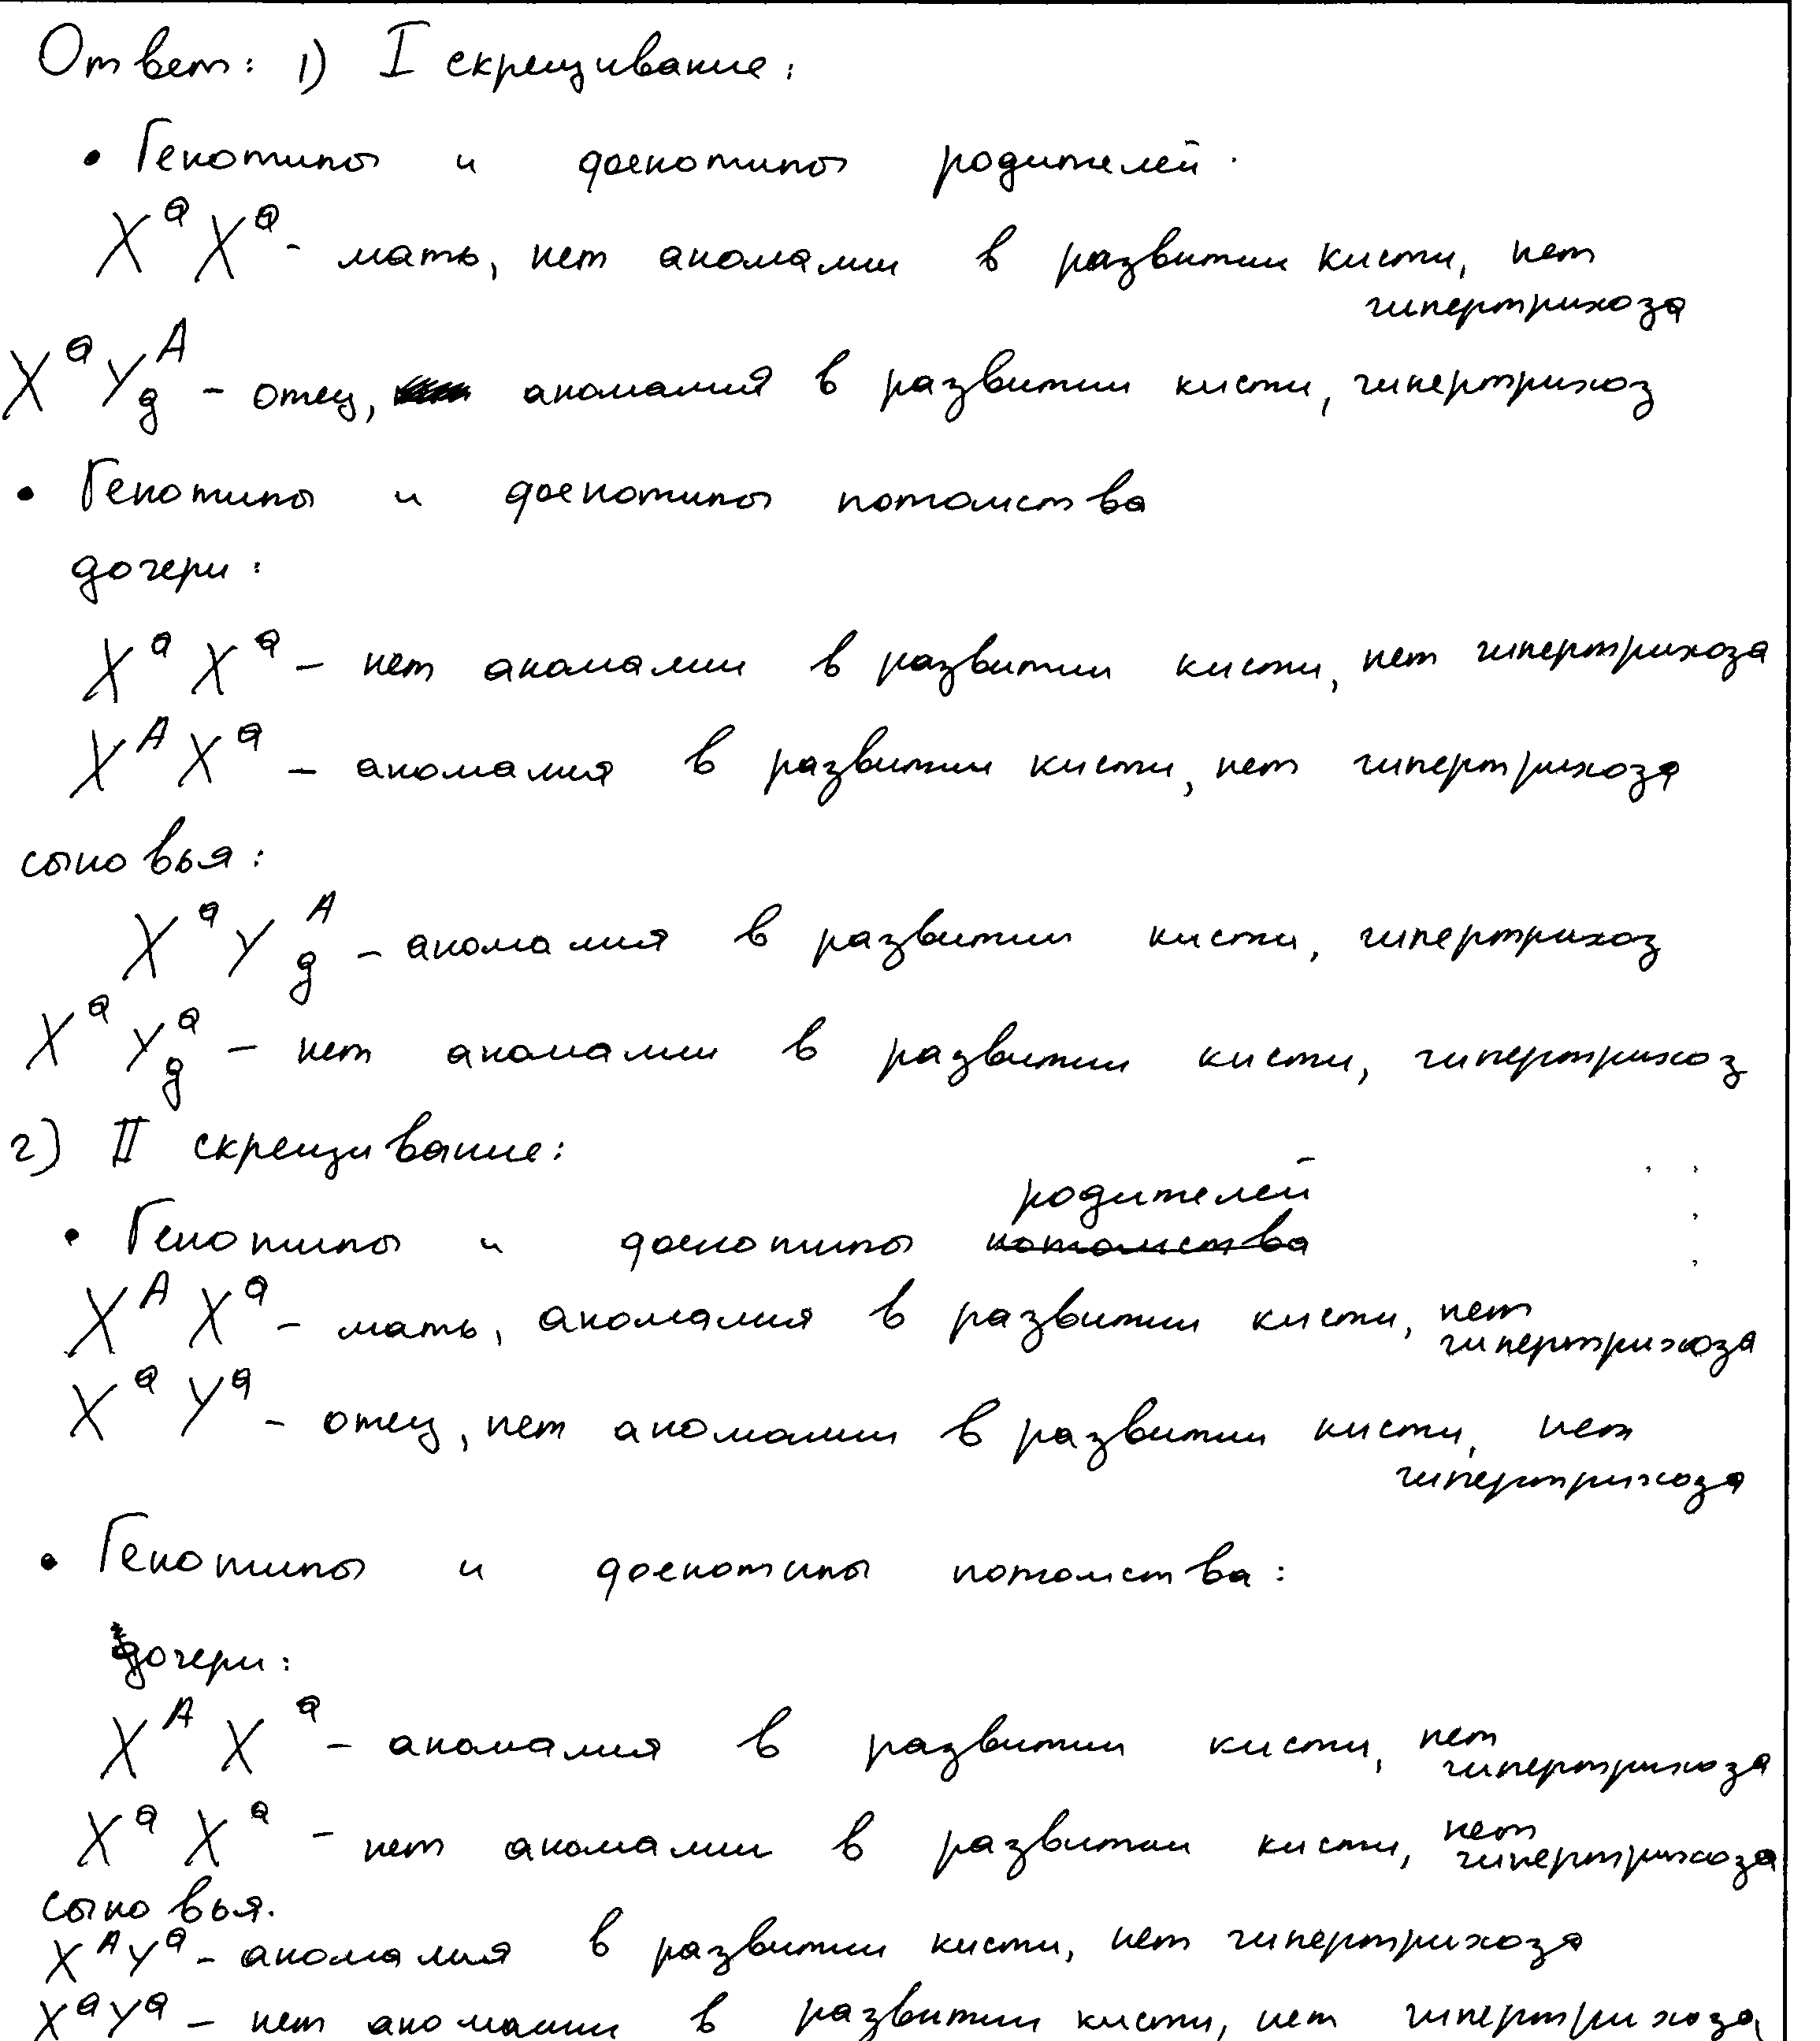 Ответ: 1) I скрещивание:
• Генотипы и фенотипы родителей.
XᵃXᵃ - мать, нет аномалии в развитии кисти, нет
гипертрихоза
XᵃY_gᴬ - отец, аномалия в развитии кисти, гипертрихоз
• Генотипы и фенотипы потомства
дочери:
XᵃXᵃ - нет аномалии в развитии кисти, нет гипертрихоза
XᴬXᵃ - аномалия в развитии кисти, нет гипертрихоза
сыновья:
XᵃY_gᴬ - аномалия в развитии кисти, гипертрихоз
XᵃY_gᵃ - нет аномалии в развитии кисти, гипертрихоз
2) II скрещивание:
• Генотипы и фенотипы потомства родителей
XᴬXᵃ - мать, аномалия в развитии кисти, нет
гипертрихоза
XᵃYᵃ - отец, нет аномалии в развитии кисти, нет
гипертрихоза
• Генотипы и фенотипы потомства:
дочери:
XᴬXᵃ - аномалия в развитии кисти, нет
гипертрихоза
XᵃXᵃ - нет аномалии в развитии кисти, нет
гипертрихоза
сыновья.
XᴬYᵃ - аномалия в развитии кисти, нет гипертрихоза
XᵃYᵃ - нет аномалии в развитии кисти, нет гипертрихоза